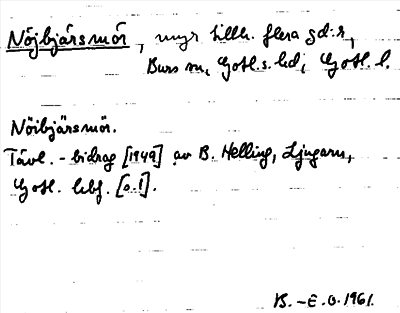 Nöjbjärsmör, myr tillh. flera gd:r,
Burs sn, Gotl. s. hd, Gotl. l.
Nöibjärsmör.
Tävl. - bidrag [1949] av B. Helling, Ljugarn,
Gotl. lbf. [o.1].
B. - E. O. 1961.